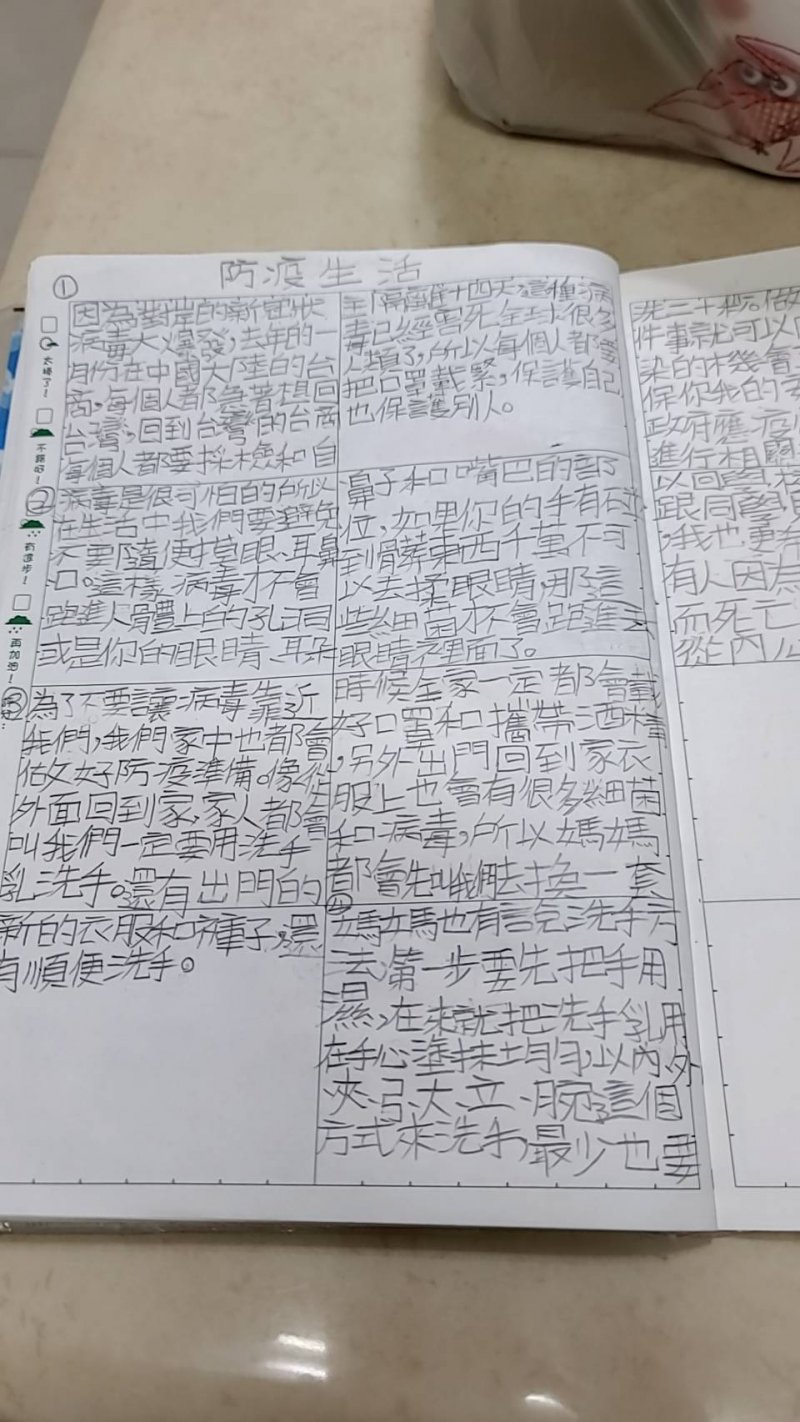 防疫生活
①
因為對崔的新冠狀
病毒大爆發,去年的一
月份在中國大陸的台
商,每個人都急著想回
台灣,回到台灣的台商
每個人都要採檢和自
主隔離十四天,這種病
毒已經害死全球很多
人類了,所以每個人都要
把口罩戴緊,保護自己
也保護別人。
②
病毒是很可怕的所以
在生活中我們要避免
不要隨便摸眼、耳鼻
口。這樣病毒才不會
跑進人體上的孔洞
或是你的眼睛、耳朵
鼻子和口嘴巴的部
位,如果你的手有碰
到髒東西千萬不可
以去揉眼睛,那這
些細菌才不會跑進去
眼睛裡面了。
③
為了不要讓病毒靠近
我們,我們家中也都會
做好防疫準備。像從
外面回到家,家人都會
叫我們一定要用洗手
乳洗手。還有出門的
時候全家一定都會戴
好口罩和攜帶酒精
,另外出門回到家衣
服上也會有很多細菌
和病毒,所以媽媽
都會先叫我們去換一套
新的衣服和褲子,還
有順便洗手。
④
媽媽也有說洗手方
法,第一步要先把手用
濕,在來就把洗手乳用
在手心塗抹均勻,以內、外
、夾、弓、大、立、腕,這個
方式來洗手,最少也要
洗三十秒。做
件事就可以
染的機會
保你我的安
政府應疫
進行相關
以回學校
跟同學
,我也更希
有人因為
而死亡
從內心
太棒了!
不錯好!
有進步!
再加油!